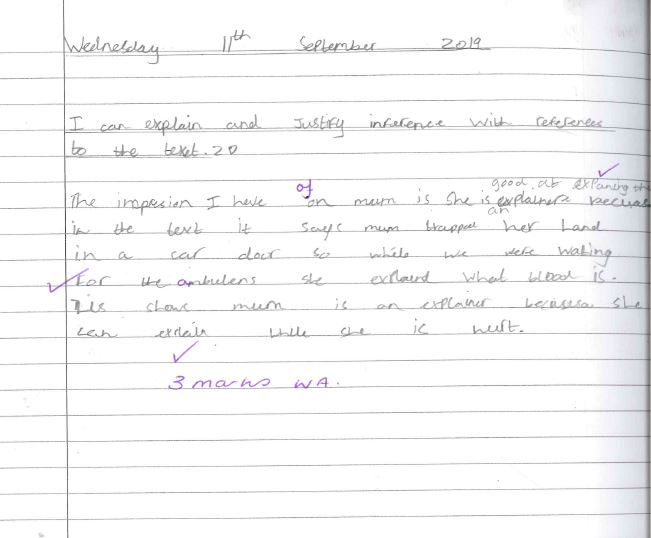 Wednesday 11th September 2019
I can explain and Justify inference with references
to the texet. 20
good at explaning the
of
The impresion I have on mum is she is explainers becuas
an
in the text it says mum trapped her hand
in a car door so while we were wating
for the ambulens she explaind what blood is.
Tis shows mum is an explainer becausesa she
can explain while she is hurt.
3 marks WA.